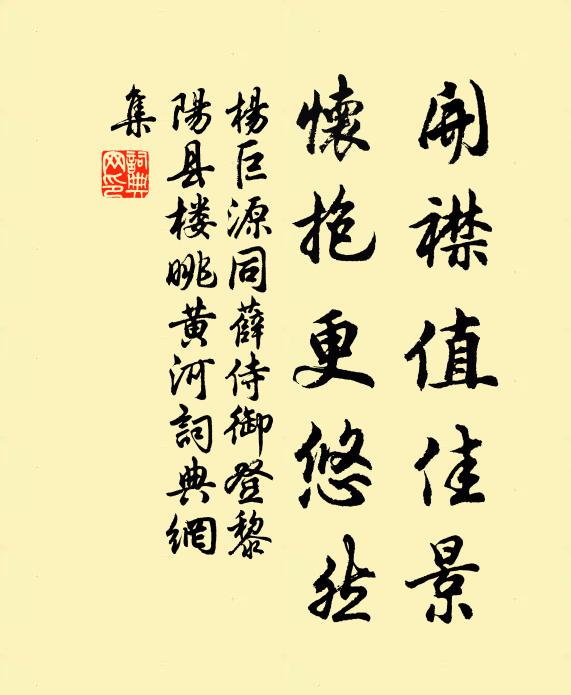 開襟值佳景
懷抱更悠然
楊巨源同薛侍御登黎
陽县楼眺黄河詞典網
集
詞典
网印